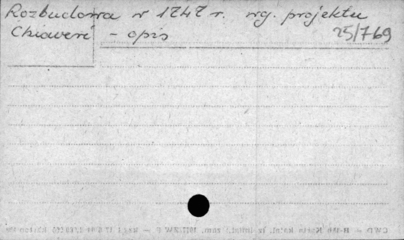 Rozbudowa w 1747 r. wg. projektu
Chiaveri - opis
25/769